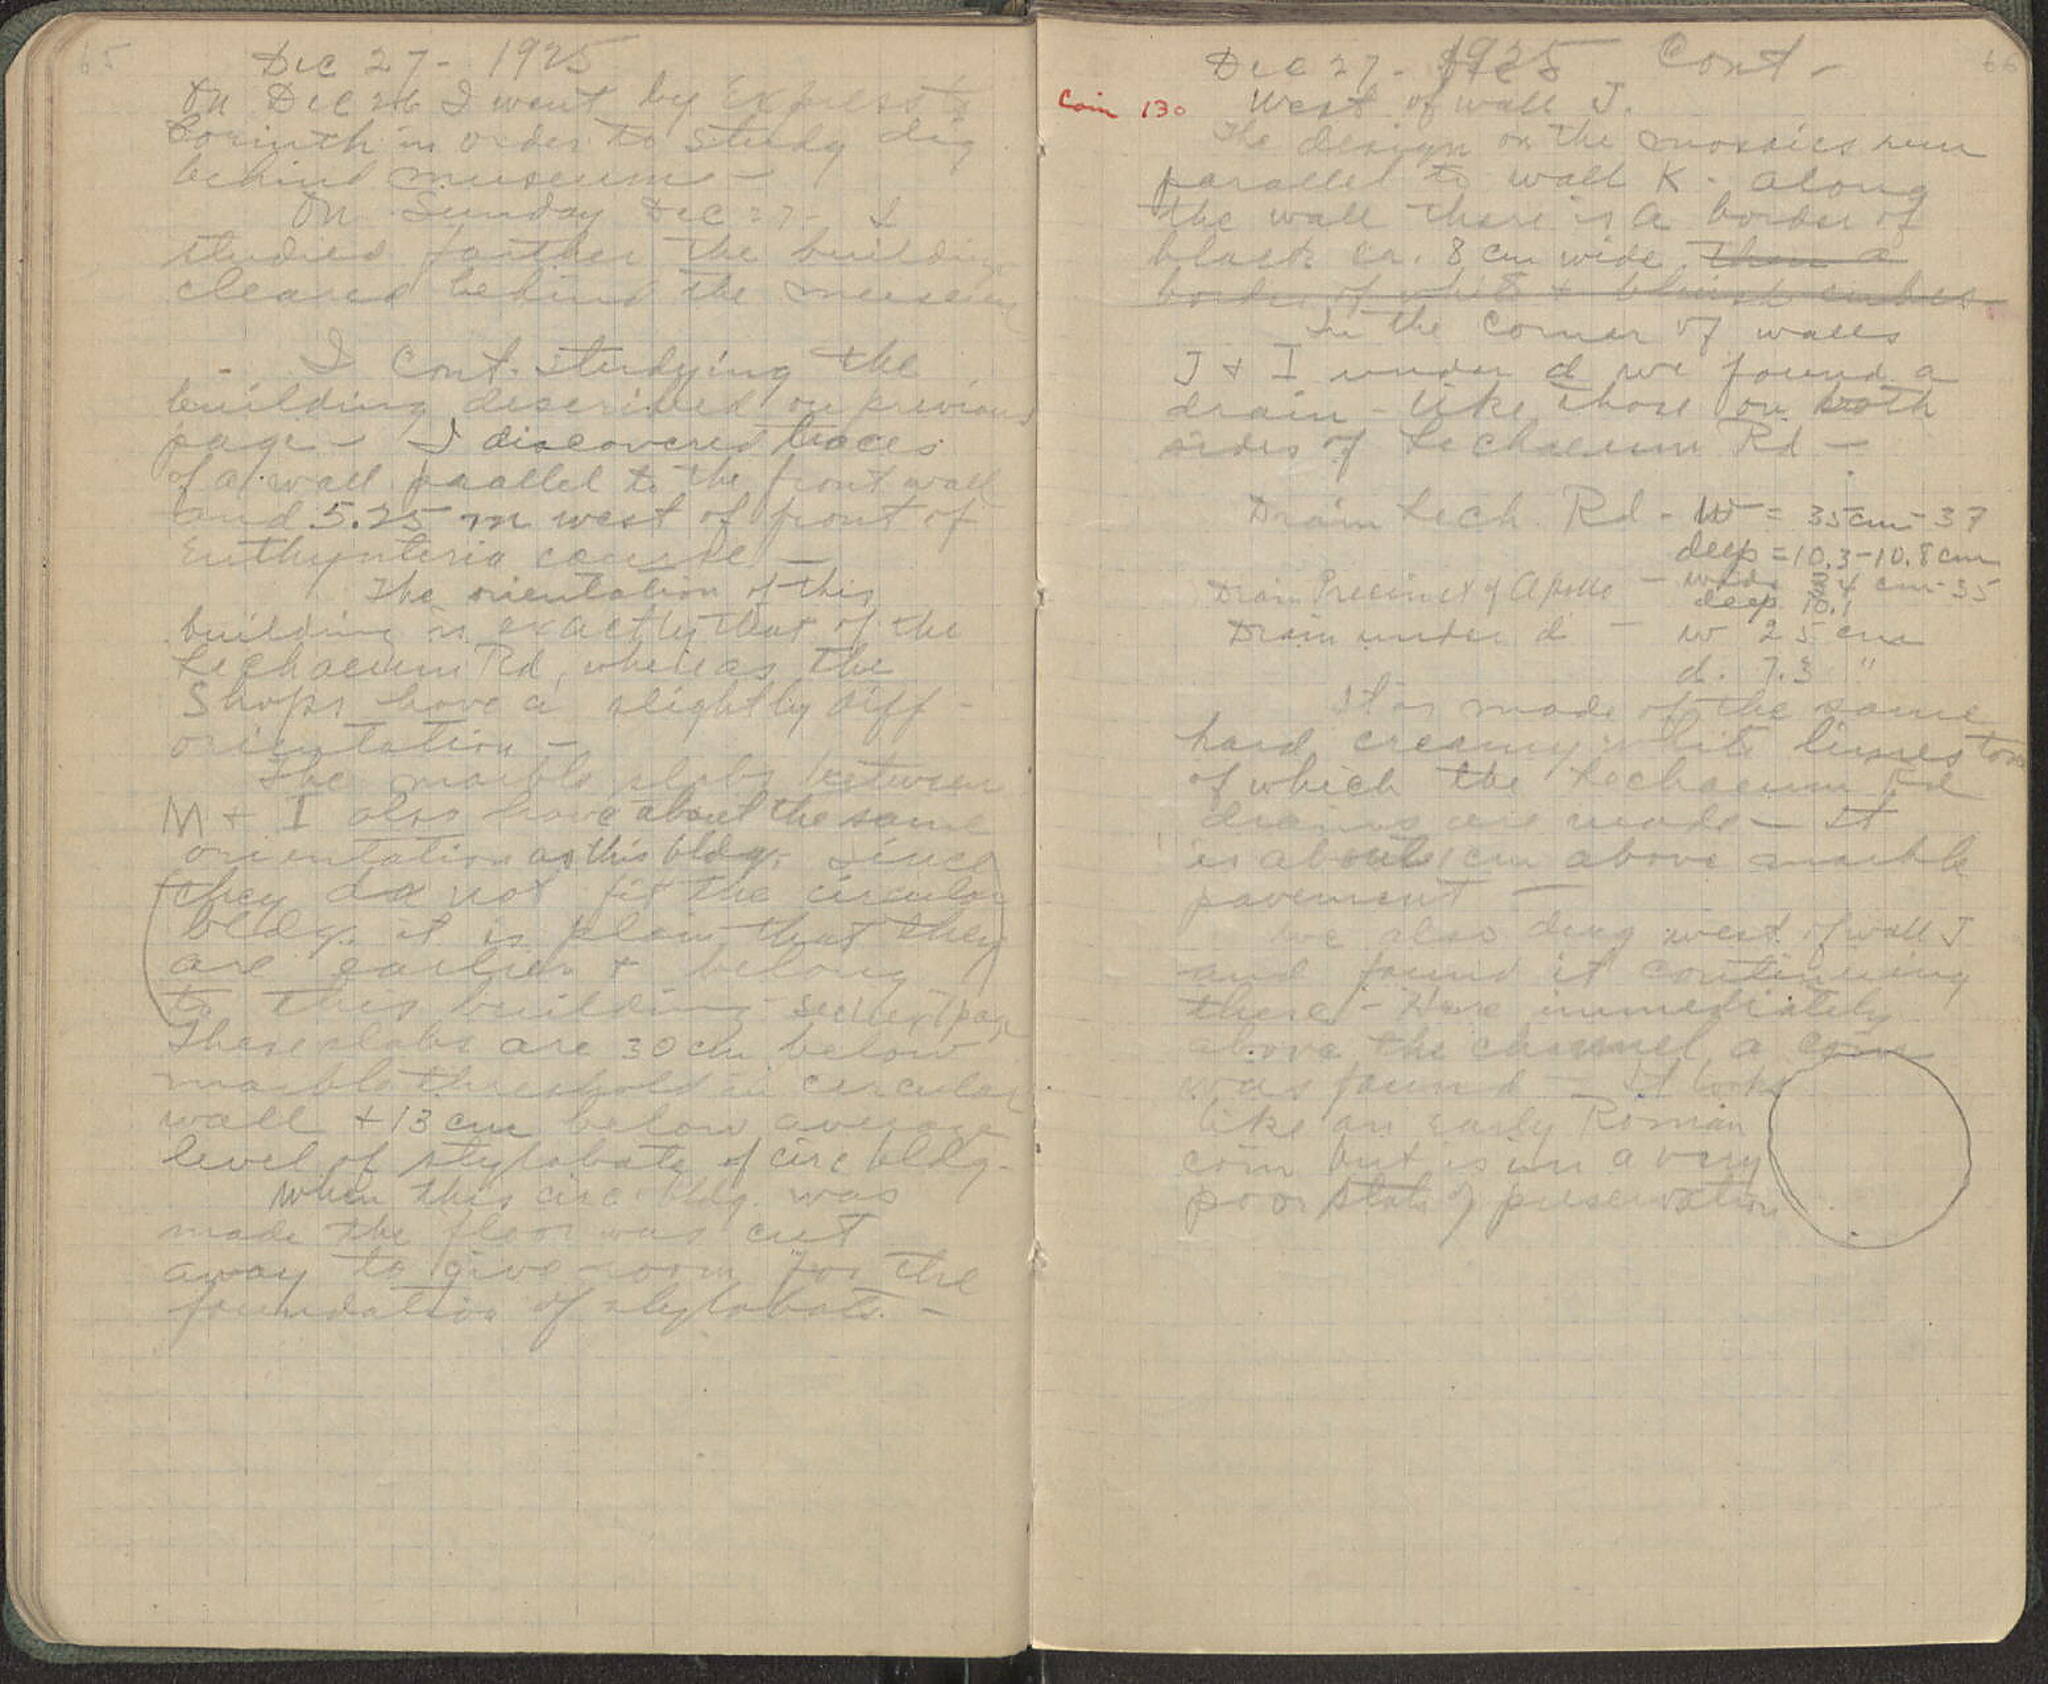 65
Dec 27 - 1925
On Dec 26 I went by Express to
Corinth in order to study dig
behind museum -
On Sunday Dec 27 - I
studied farther the building
cleared behind the museum
- I cont. studying the
building described on previous
page - I discovered traces
of a wall parallel to the front wall
and 5.25 m west of front of
Euthynteria course -
The orientation of this
building is exactly that of the
Lechaeum Rd, whereas the
Shops have a slightly diff -
orientation -
The marble slabs between
M + I also have about the same
orientation as this bldg. since
they do not fit the circular
bldg. it is plain that they
are earlier + belong
to this building - see next page
These slabs are 30 cm below
marble threshold in circular
wall + 13 cm below average
level of stylobate of circ bldg -
When this circ. bldg. was
made the floor was cut
away to give room for the
foundation of stylobate. -
66
Dec 27 - 1925 Cont -
Coin 130
West of wall J.
The design on the mosaics run
parallel to wall K - along
the wall there is a border of
black ca. 8 cm wide then a
border of white + bluish cubes -
In the corner of walls
J + I under d we found a
drain - like those on both
sides of Lechaeum Rd -
Drain Lech. Rd - W = 35 cm - 37
deep = 10.3 - 10.8 cm
Drain Precinct of Apollo - wide 34 cm - 35
deep 10.1
Drain under d - w 25 cm
d. 7.3 "
It is made of the same
hard creamy white limestone
of which the Lechaeum Rd
drains are made - It
is about 1 cm above marble
pavement -
We also dug west of wall J
and found it continuing
there - Here immediately
above the channel a coin
was found - It looks
like an early Roman
coin but is in a very
poor state of preservation